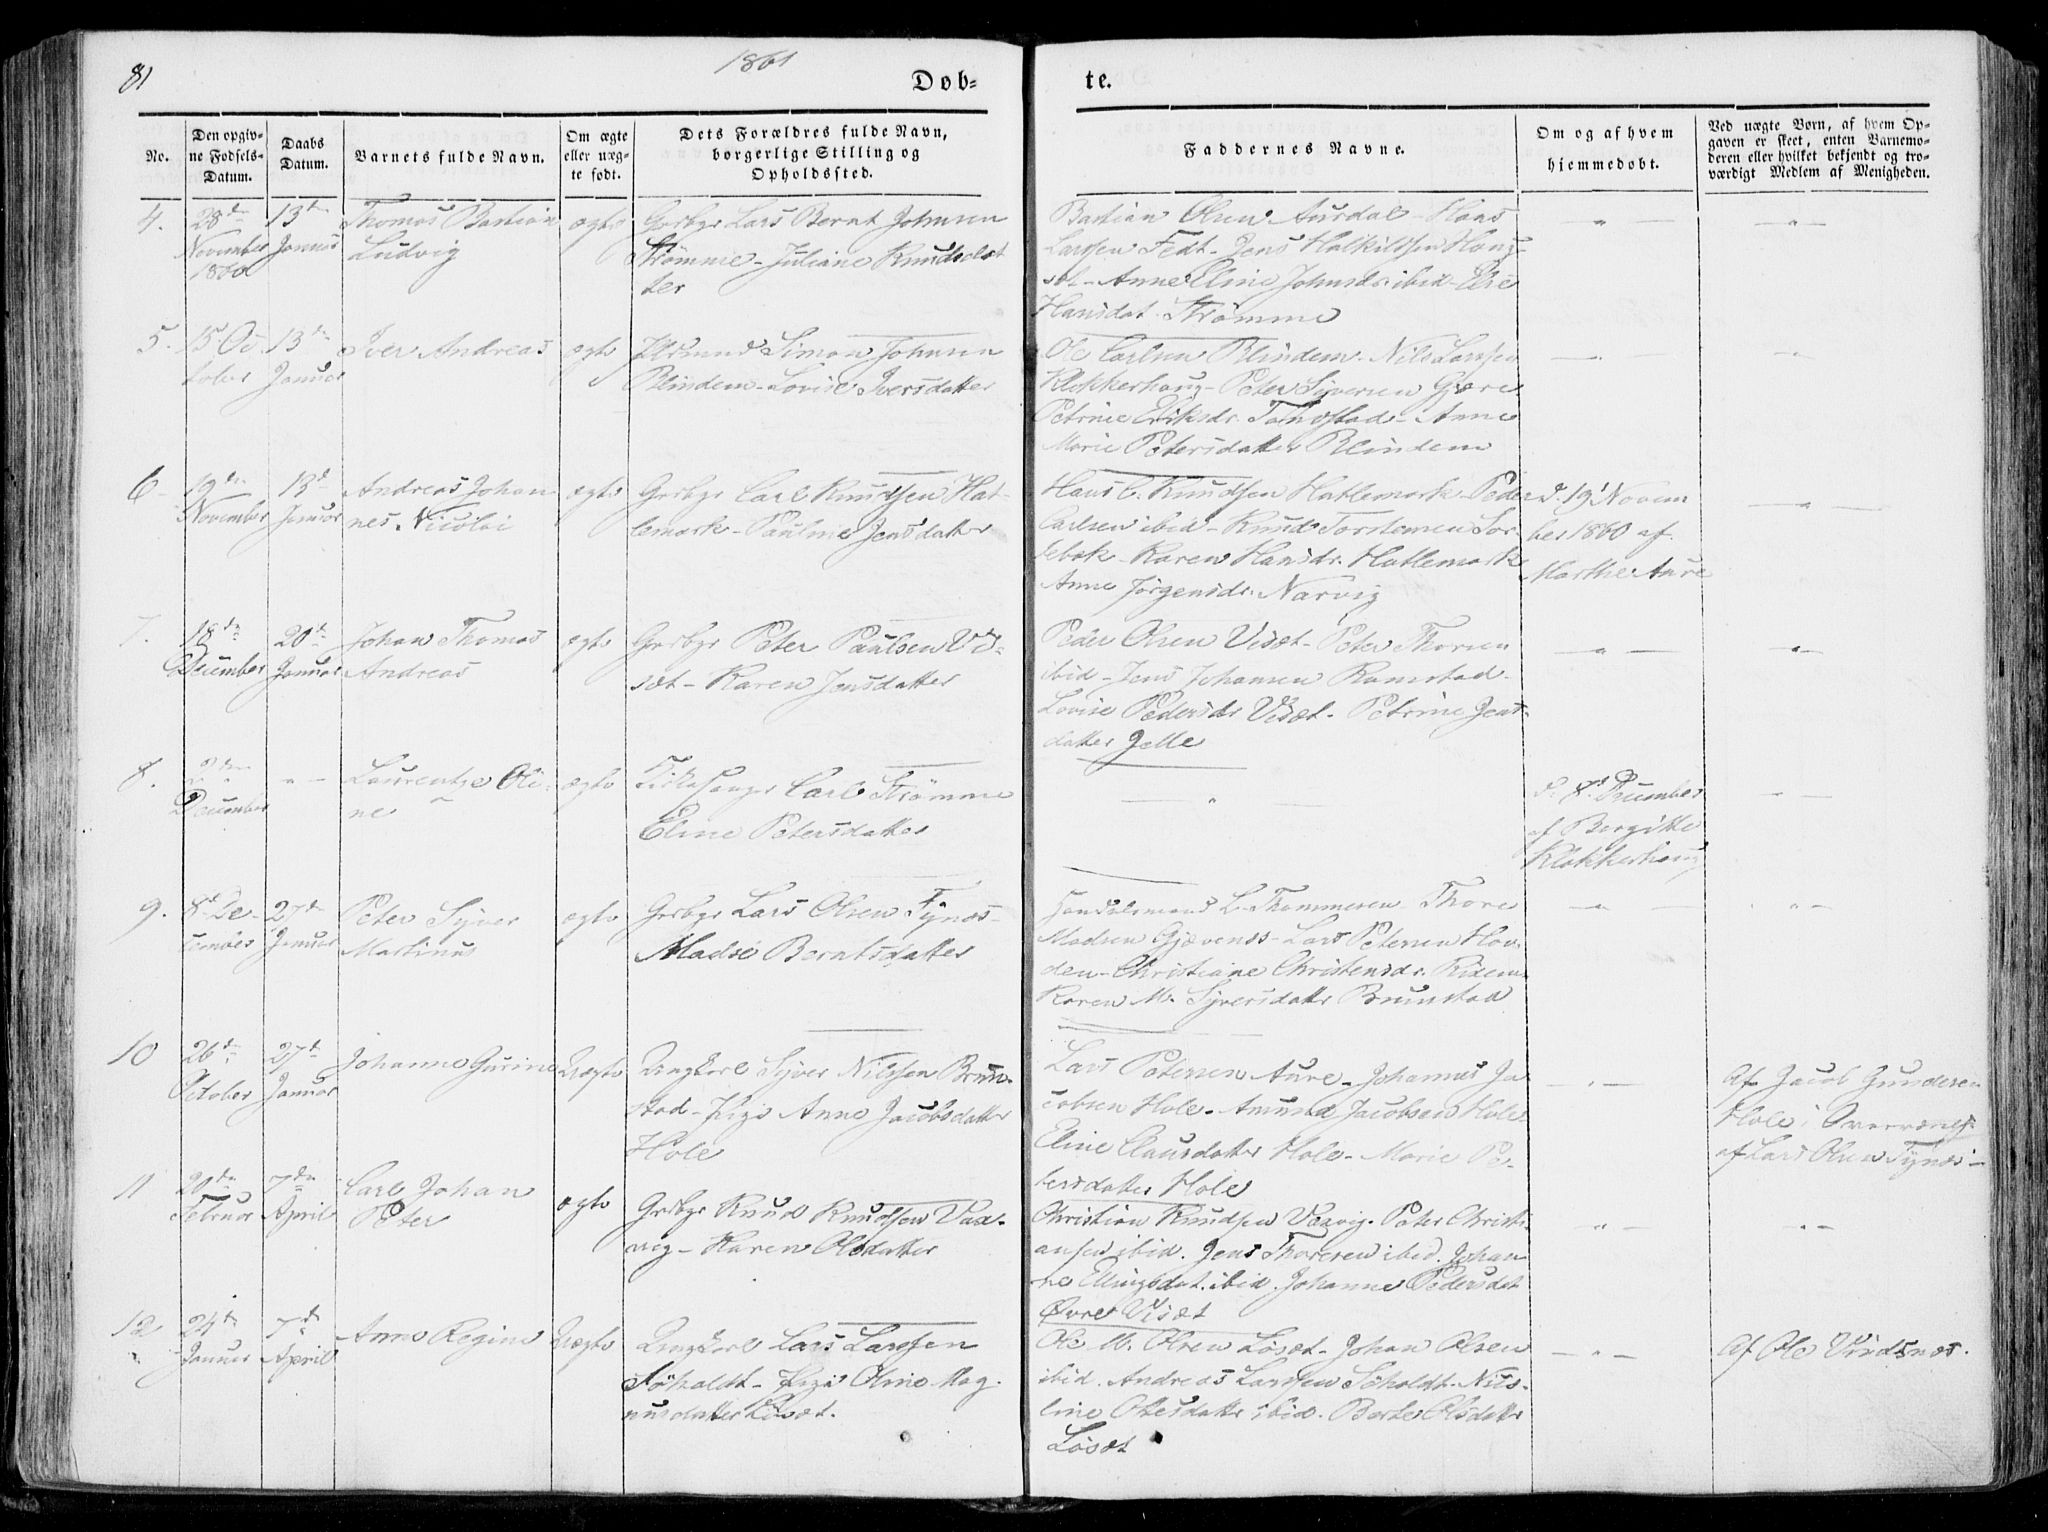 81
1861
Døb-
te.
No.
Den opgiv-
ne Fødsels-
Datum.
Daabs
Datum.
Barnets fulde Navn.
Om ægte
eller uæg-
te født.
Dets Forældres fulde Navn,
borgerlige Stilling og
Opholdssted.
Faddernes Navne.
Om og af hvem
hjemmedøbt.
Ved uægte Børn, af hvem Op-
gaven er skeet, enten Barnemo-
deren eller hvilket bekjendt og tro-
værdigt Medlem af Menigheden.
4.
28de
November
1860
13de
Januar
Thomas Bastian
Ludvig
ægte
Grbgr Lars Bernt Johnsen
Strømme - Juliane Knudsdat
ter
Bastian Olsen Aurdal - Hans
Larssen Fedt - Jens Halkildsen Houg-
Anne Eline Johnsdr ibid - Else
Hansdat. Strømme
5.
15 Oc
tober
13de
Januar
Iver Andreas
ægte
Simon Johnsen
Blindem - Lovise Iversdatter
Ole Carlsen Blindem. Nils Larssen
Klokkerhoug - Peter Syversen Gjære
Petrine Eriksdr. Tandstad - Anne
Marie Petersdatter Blindem
6
19de
November
13de
Januar
Andreas Johan
nes Nicolai
ægte
Grbgr Carl Knudsen Hat-
lemark - Pauline Jensdatter
Hans C. Knudsen Hatlemark - Peder
Carlsen ibid - Knud Torstensen Sor-
tebak - Karen Hansdr. Hatlemark
Anne Jørgensdr. Nærvig
d. 19 Novem
ber 1860 af
Marthe Aure
7.
18de
December
20de
Januar
Johan Thomas
Andreas
ægte
Grbgr Peter Paulsen Vi-
sæt - Karen Jensdatter
Peder Olsen Visæt - Peter Thorsen
ibid - Jens Johansen Ramstad
Lovise Pedersdr Visæt - Petrine Jens-
datter Jelle
8.
2den
December
Laurentze Oli-
ne
ægte
Kirkesanger Carl Strømme
Eline Petersdatter
d. 8d December
af Bergitte
Klokkerhoug
9.
8d De-
cember
27de
Januar
Peter Syver
Martinus
ægte
Grbgr Lars Olsen Tynæs-
Madse Berntsdatter
Handelsmand L. Thommesen Thore
Madsen Gjævenes - Lars Petersen Hov-
den - Christiane Christensdr. Ridem
Karen M. Syversdatter Brunstad
10
26de
October
27de
Januar
Johanne Gurine
Uægte
Ungkarl Syver Nilssen Brun-
stad - Pige Anne Jacobsdatter
Hole
Lars Petersen Aure - Johannes Ja
cobsen Hole. Amund Jacobsen Hole
Eline Clausdatter Hole - Marie Pe-
tersdatter Hole
Af Jacob Gundersen
Hole i Overværelse
af Lars Olsen Tynæs
11
20de
Februar
7de
April
Carl Johan
Peter
ægte
Grbgr Knud Knudsen Vax-
vig - Karen Olsdatter
Christian Knudsen Vaxvig. Peter Christi-
ansen ibid. Jens Thoresen ibid. Johan
ne Ellingsdat. ibid. Johanne Pedersdat
Øvre Visæt
12
24de
Januar
7de
April
Anne Regine
Uægte
Ungkarl Lars Larssen
Søholdt - Pige Oline Mag-
nusdatter Løsæt.
Ole M. Olsen Løsæt - Johan Olsen
ibid. Andreas Larssen Søholdt. Nils-
line Olsdatter ibid. Berte Olsdatter
Løsæt
Af Ole Vindsnæs.